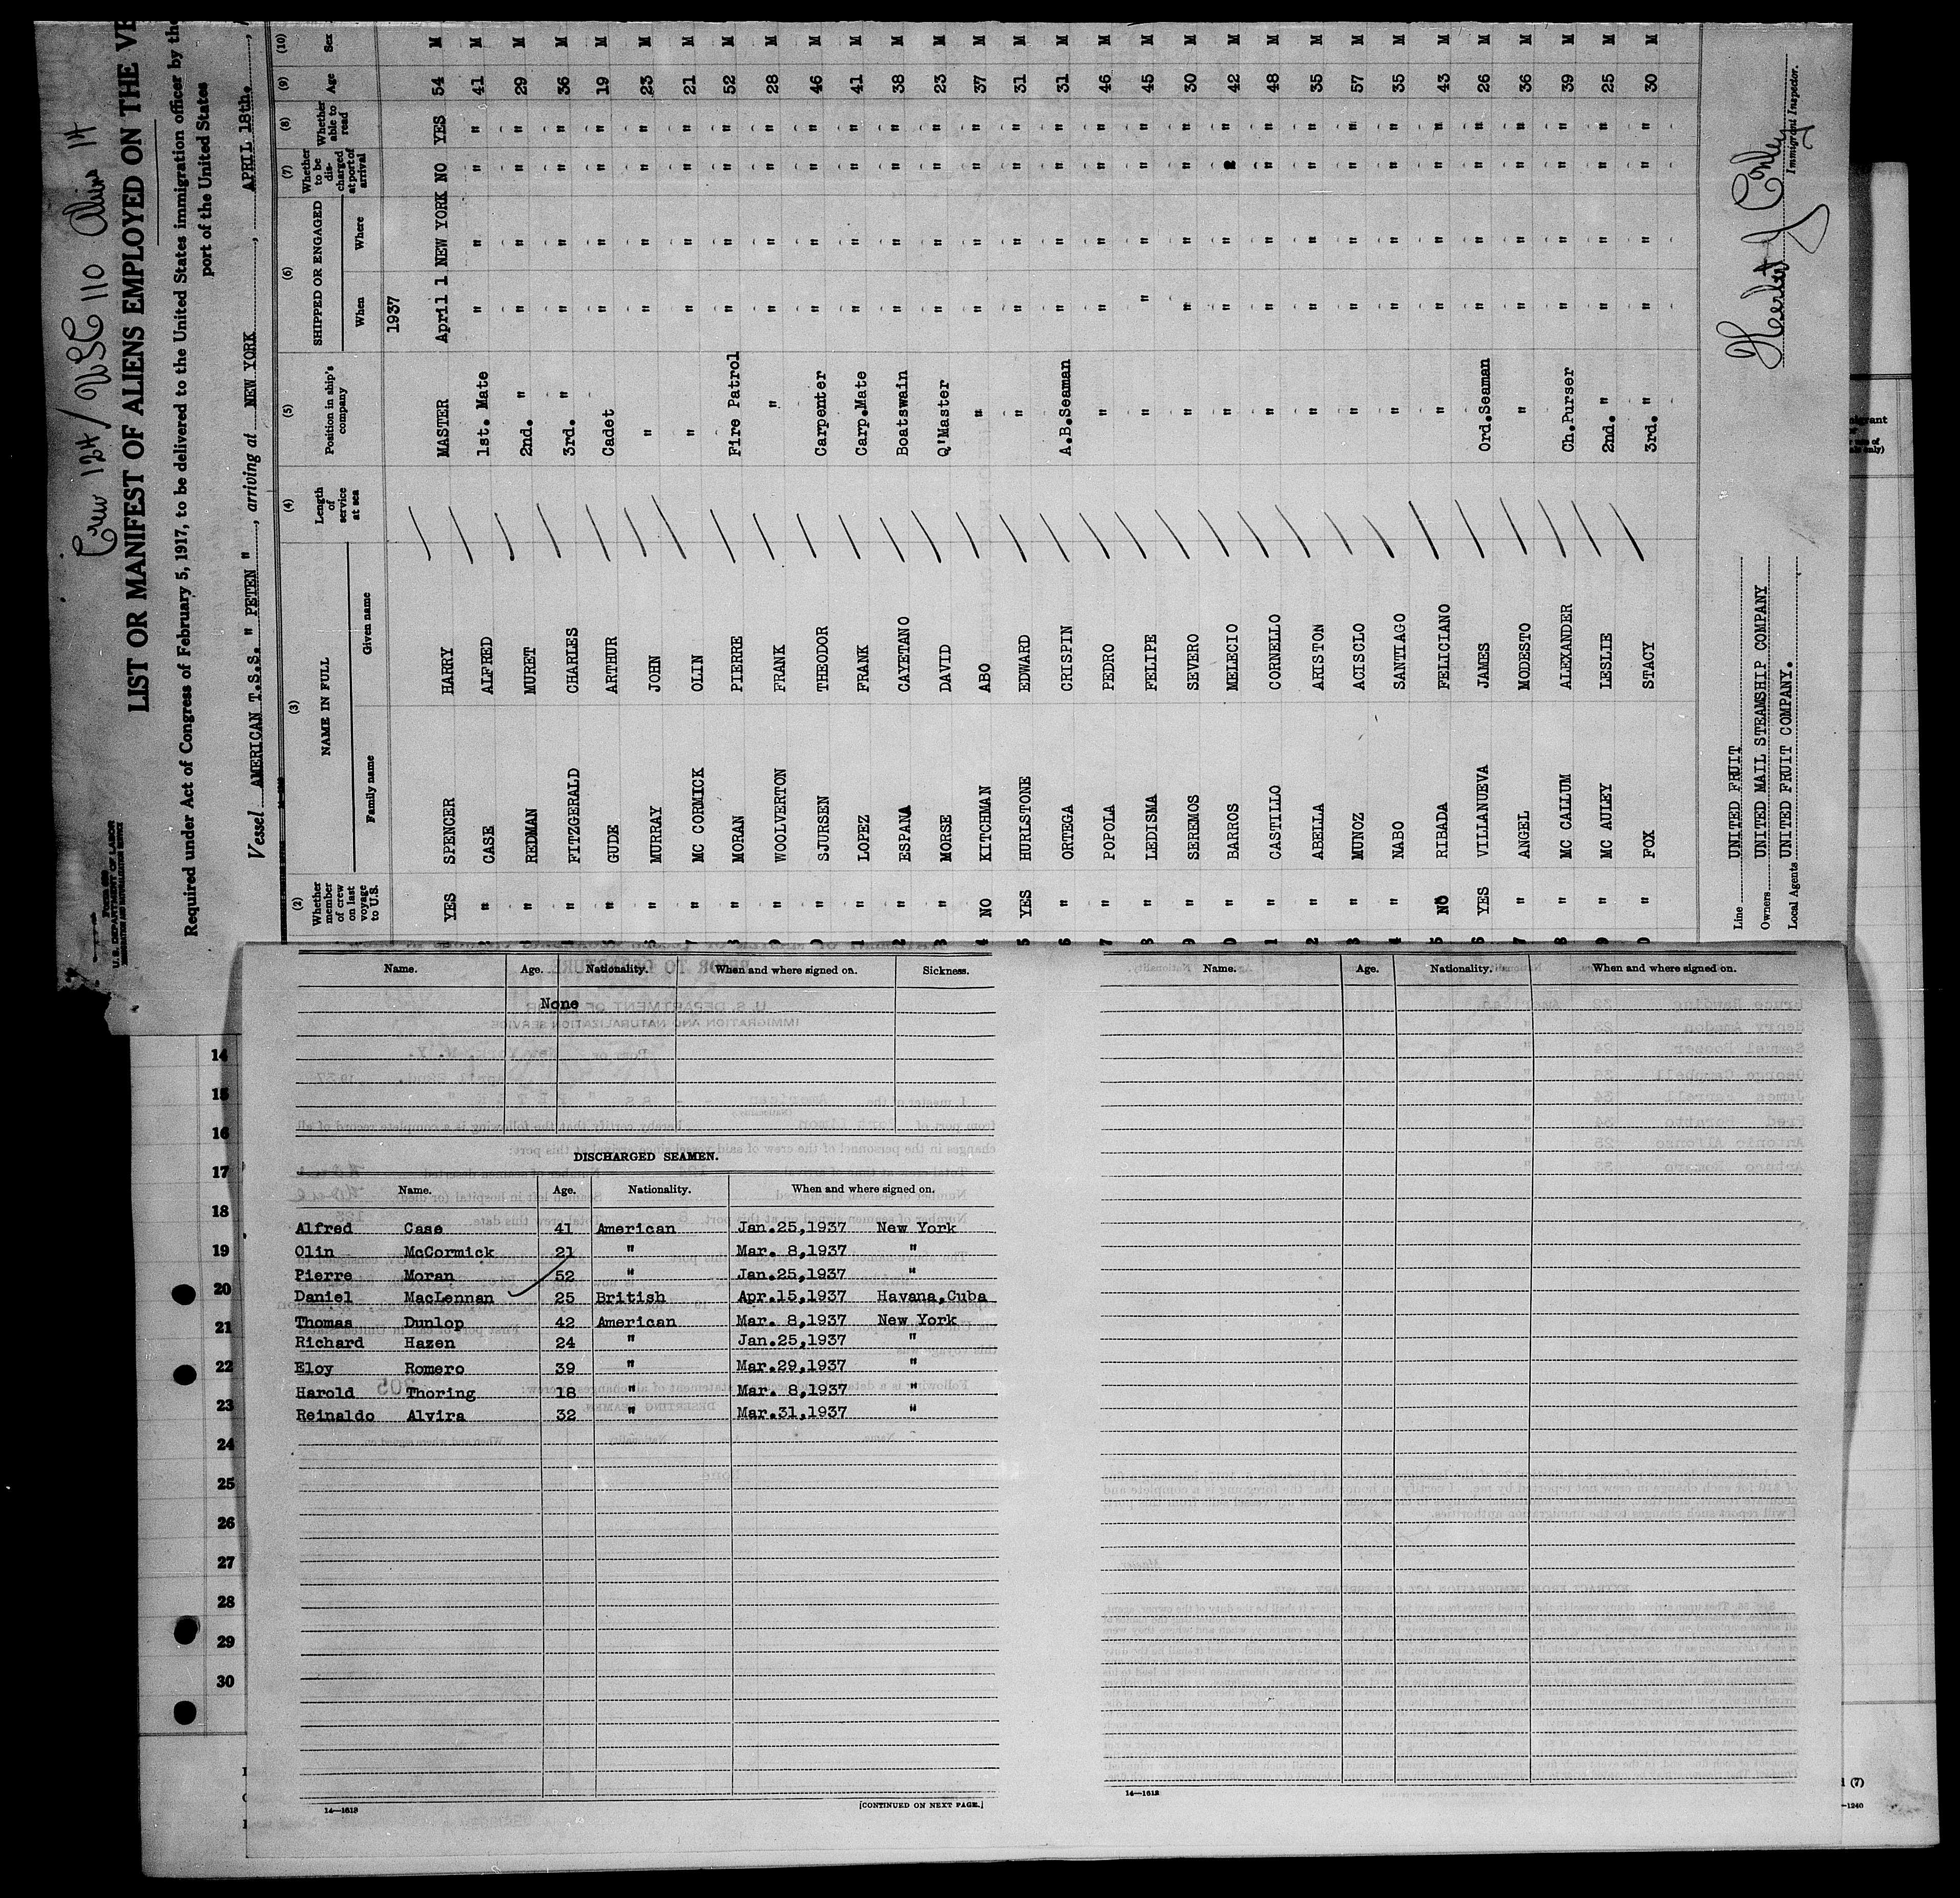 Crew 124/ USC 110 Aliens 14
Form 689
U. S. DEPARTMENT OF LABOR
IMMIGRATION AND NATURALIZATION SERVICE
LIST OR MANIFEST OF ALIENS EMPLOYED ON THE VE
Required under Act of Congress of February 5, 1917, to be delivered to the United States immigration officer by the
port of the United States
Vessel AMERICAN T.S.S. " PETEN ", arriving at NEW YORK, APRIL 18th.,
(2) (3) (4) (5) (6) (7) (8) (9) (10)
Whether member of crew on last voyage to U.S. NAME IN FULL Length of service at sea Position in ship's company SHIPPED OR ENGAGED Whether to be discharged at port of arrival Whether able to read Age Sex
Family name Given name When Where
1937
YES SPENCER HARRY MASTER April 1 NEW YORK NO YES 54 M
" CASE ALFRED 1st. Mate " " " " 41 M
" REDMAN MURET 2nd. " " " " " 29 M
" FITZGERALD CHARLES 3rd. " " " " " 36 M
" GUDE ARTHUR Cadet " " " " 19 M
" MURRAY JOHN " " " " " 23 M
" MC CORMICK OLIN " " " " " 21 M
" MORAN PIERRE Fire Patrol " " " " 52 M
" WOOLVERTON FRANK " " " " " 28 M
" SJURSEN THEODOR Carpenter " " " " 46 M
" LOPEZ FRANK Carp.Mate " " " " 41 M
" ESPANA CAYETANO Boatswain " " " " 38 M
" MORSE DAVID Q'Master " " " " 23 M
NO KITCHMAN ABO " " " " " 37 M
YES HURLSTONE EDWARD " " " " " 31 M
" ORTEGA CRISPIN A.B.Seaman " " " " 31 M
" POPOLA PEDRO " " " " " 46 M
" LEDISMA FELIPE " " " " " 45 M
" SEREMOS SEVERO " " " " " 30 M
" BARROS MELECIO " " " " " 42 M
" CASTILLO CORNELLO " " " " " 48 M
" ABELLA ARISTON " " " " " 35 M
" MUNOZ ACISCLO " " " " " 57 M
" NABO SANTIAGO " " " " " 35 M
NO RIBADA FELICIANO " " " " " 43 M
YES VILLANUEVA JAMES Ord.Seaman " " " " 26 M
" ANGEL MODESTO " " " " " 36 M
" MC CALLUM ALEXANDER Ch.Purser " " " " 39 M
" MC AULEY LESLIE 2nd. " " " " " 25 M
" FOX STACY 3rd. " " " " " 30 M
Line UNITED FRUIT
Owners UNITED MAIL STEAMSHIP COMPANY
Local Agents UNITED FRUIT COMPANY.
Immigrant Inspector.
Name. Age. Nationality. When and where signed on. Sickness.
None
DISCHARGED SEAMEN.
Name. Age. Nationality. When and where signed on.
Alfred Case 41 American Jan.25,1937 New York
Olin McCormick 21 " Mar. 8,1937 "
Pierre Moran 52 " Jan.25,1937 "
Daniel MacLennan 25 British Apr.15,1937 Havana,Cuba
Thomas Dunlop 42 American Mar. 8,1937 New York
Richard Hazen 24 " Jan.25,1937 "
Eloy Romero 39 " Mar.29,1937 "
Harold Thoring 18 " Mar. 8,1937 "
Reinaldo Alvira 32 " Mar.31,1937 "
14—1613 [CONTINUED ON NEXT PAGE.]
Name. Age. Nationality. When and where signed on.
14—1613
14
15
16
17
18
19
20
21
22
23
24
25
26
27
28
29
30
(7)
—1240